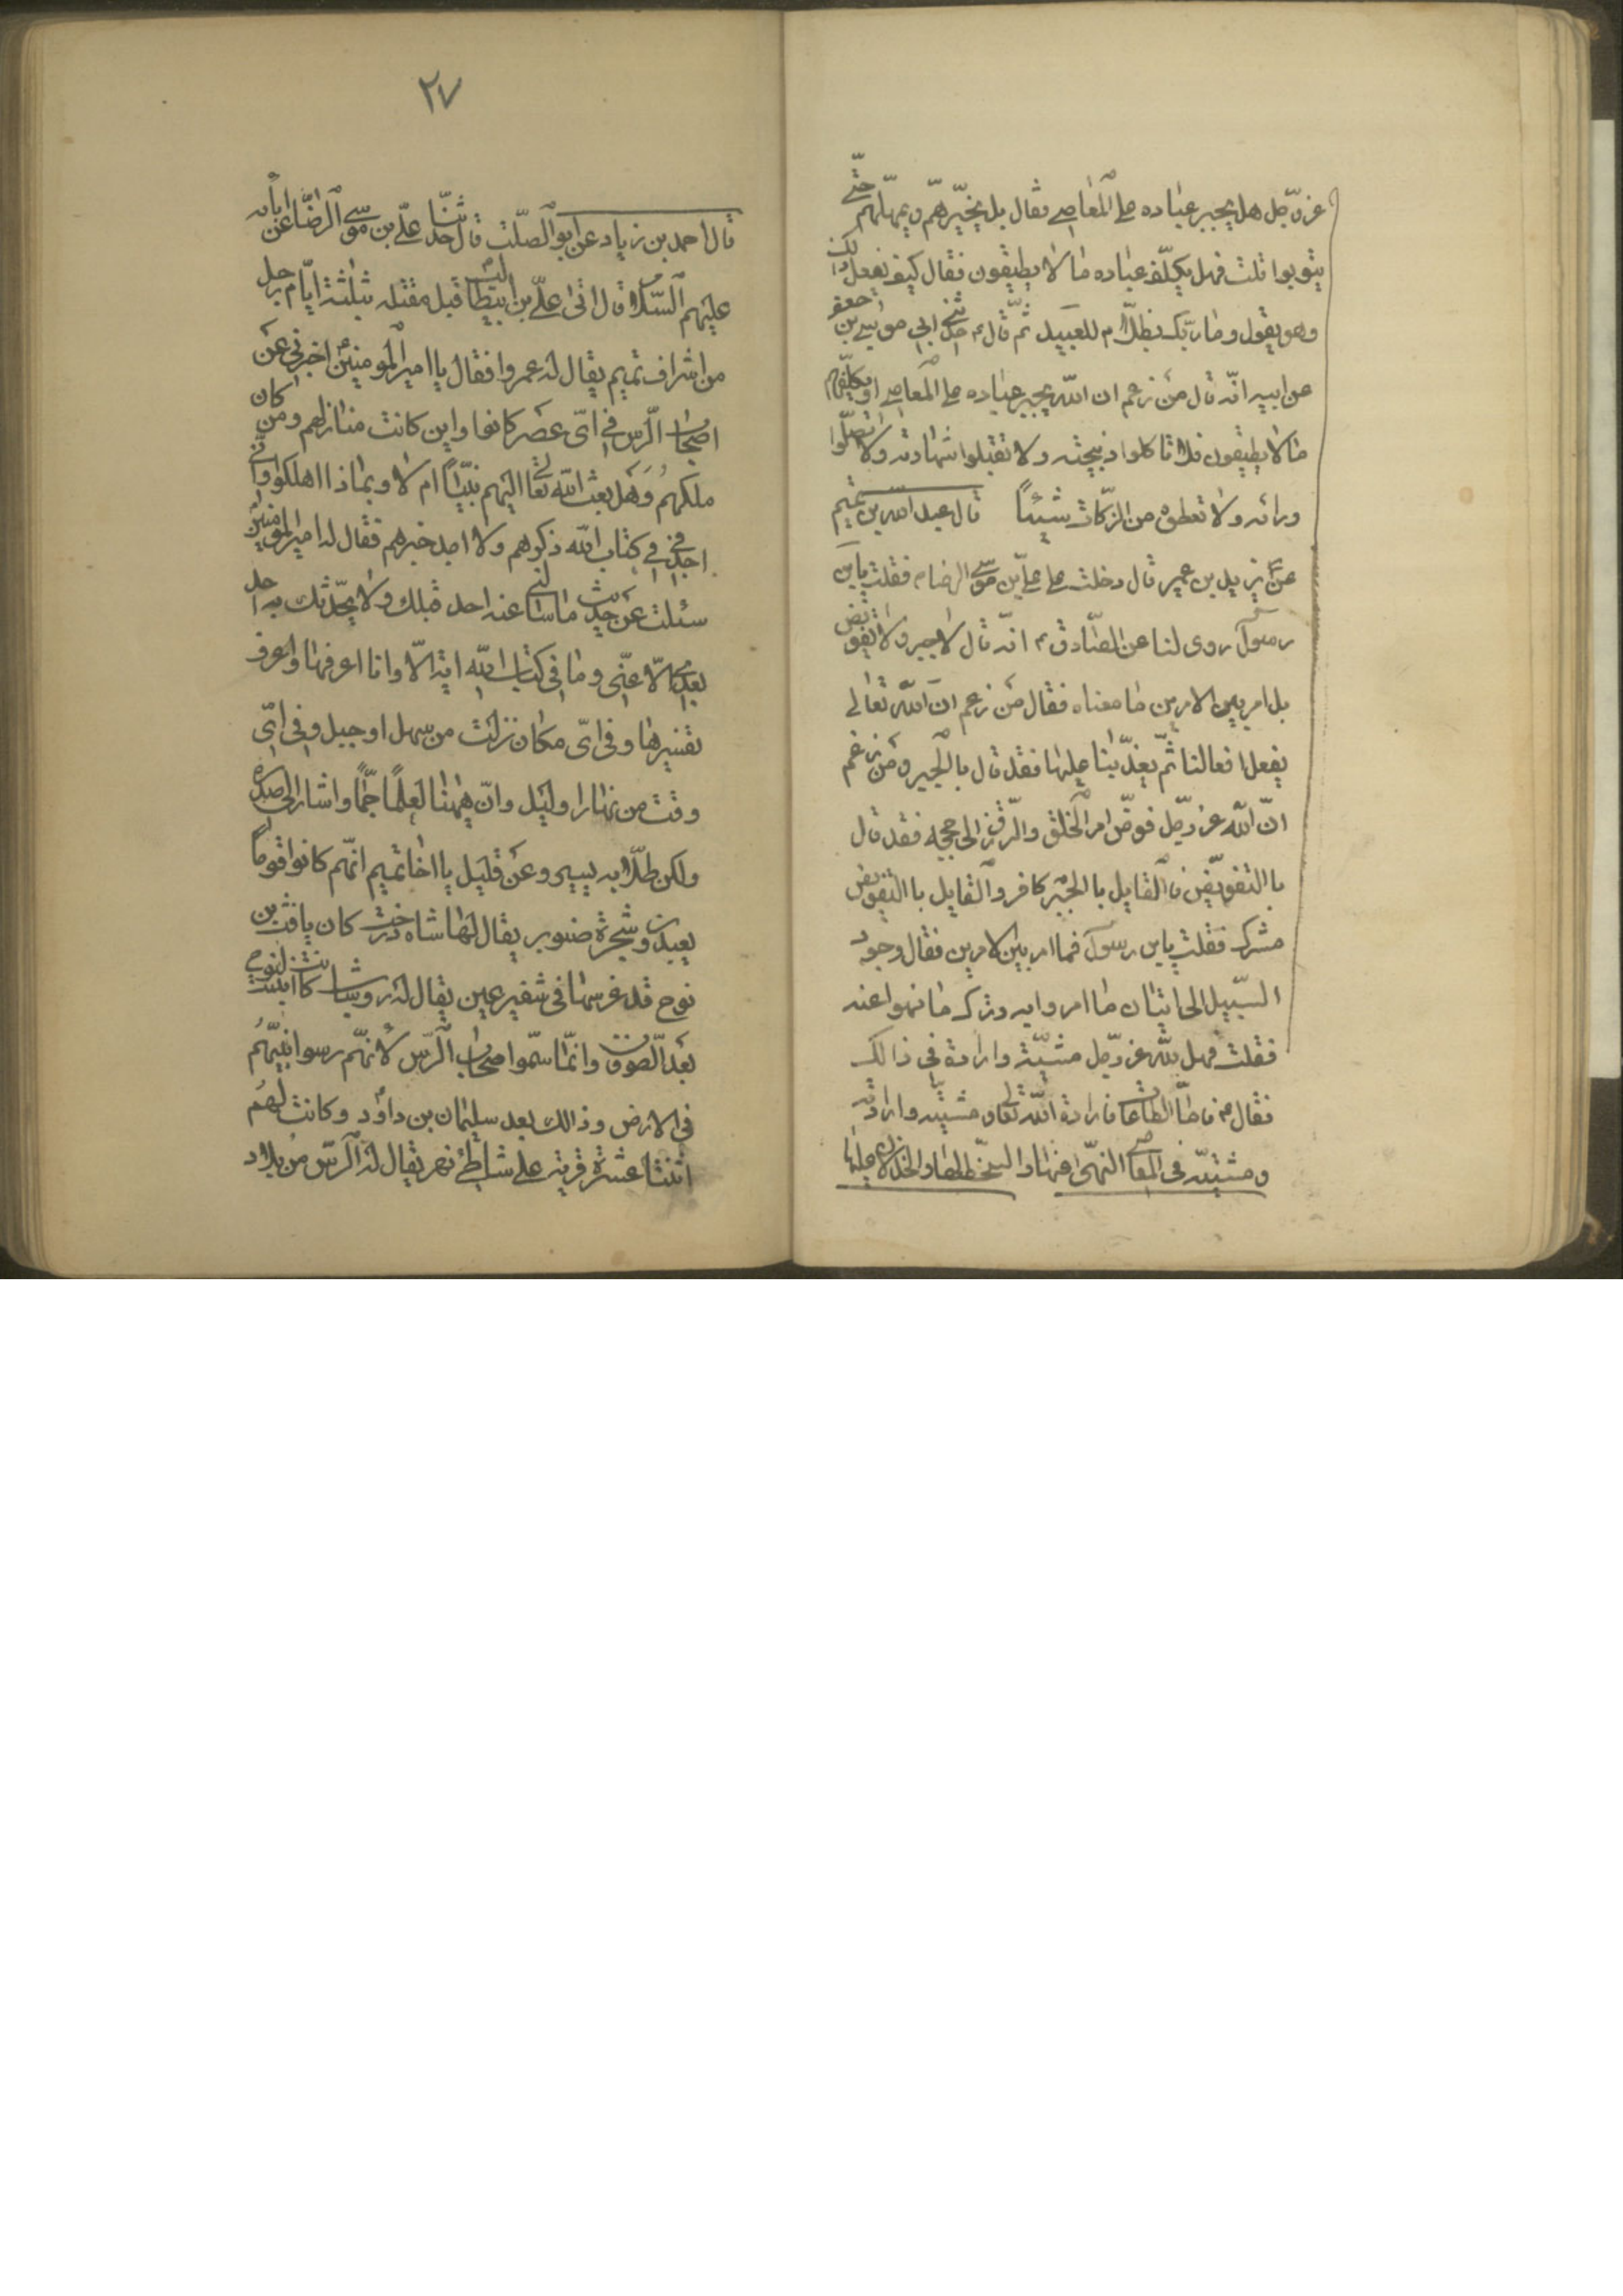 عز وجل هل يجبر عباده على المعاصي فقال بل يخيّرهم ويمهلهم حتّى
يتوبوا قلت فهل يكلّف عباده ما لا يطيقون فقال كيف يفعل ذلك
وهو يقول وما ربّك بظلّام للعبيد ثمّ قال م حدثني ابي موسى بن جعفر
عن ابيه انّه قال من زعم ان الله يجبر عباده على المعاصي او يكلّفهم
ما لا يطيقون فلا تاكلوا ذبيحته ولا تقبلوا شهادته ولا تصلّوا
ورائه ولا تعطوه من الزكات شيئاً قال عبد الله بن تميم
عن يزيد بن عمير قال دخلت على علي بن موسى الرضا م فقلت يابن
رسول روى لنا عن الصّادق م انّه قال لا جبر ولا تفويض
بل امر بين الامرين ما معناه فقال من زعم انّ الله تعالى
يفعل افعالنا ثمّ يعذّبنا عليها فقد قال بالجبر ومن زعم
انّ الله عز وجل فوّض امر الخلق والرّزق الى حججه فقد قال
باالتفويض فالقايل باالجبر كافر والقايل باالتفويض
مشرك فقلت يابن رسول فما امر بين الامرين فقال وجود
السّبيل الى اتيان ما امروا به وترك ما نهوا عنه
فقلت فهل لله عز وجل مشيّة وارادة في ذالك
فقال م فامّا الطاعات فارادة الله تعالى ومشيته وارادته
ومشيته في المعاصي النهى عنها والسخط لها والخذلان عليها
٢٧
قال احمد بن زياد عن ابو الصّلت قال حدّثنا علي بن موسى الرضا عن اباه
عليهم السّلام قال اتى علّي بن ابيطالب قبل مقتله بثلثة ايّام رجل
من اشراف تميم يقال له عمروا فقال يا امير المومنين اخبرني عن
اصحاب الرّس في اىّ عصر كانوا واين كانت منازلهم ومن كان
ملكهم وهل بعث الله تعالى اليهم نبيّاً ام لا وبماذا اهلكوا وانّي
اجد في كتاب الله ذكرهم ولا اجد خبرهم فقال له امير المومنين
سئلت عن حديث ما سالني عنه احد قبلك ولا يحدّثك به احد
بعدي الّا عنّي وما في كتاب الله اية الّا وانا اعرفها واعرف
تفسيرها وفي اىّ مكان نزلت من سهل او جبل وفي اىّ
وقت من نهار او ليل وانّ ههنا لعلمًا جمًّا واشار الى صدره
ولكن طلّابه يسير وعن قليل يا اخا تميم انّهم كانوا قوماً
يعبدون شجرة صنوبر يقال لها شاه درخت كان يافث بن
نوح قد غرسها في شفير عين يقال له روشاب كانت انبتت لنوح
بعد الطوفان وانّما سمّوا اصحاب الرّس لانهّم رسوا نبيّهم
في الارض وذالك بعد سليمان بن داود وكانت لهم
اثنتا عشرة قرية على شاطئ نهر يقال له الرّس من بلاد